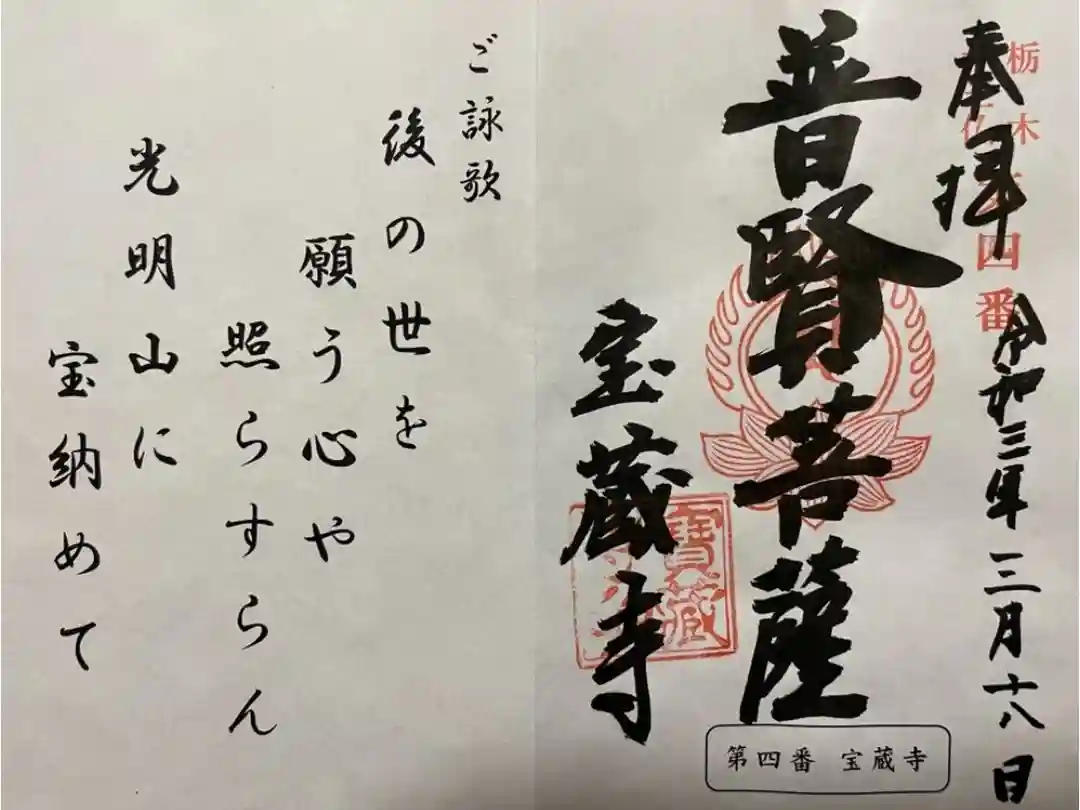 奉拝
栃木
四番
令和三年三月十八日
普賢菩薩
宝蔵寺
寶藏
第四番 宝蔵寺
ご詠歌
後の世を
願う心や
照らすらん
光明山に
宝納めて